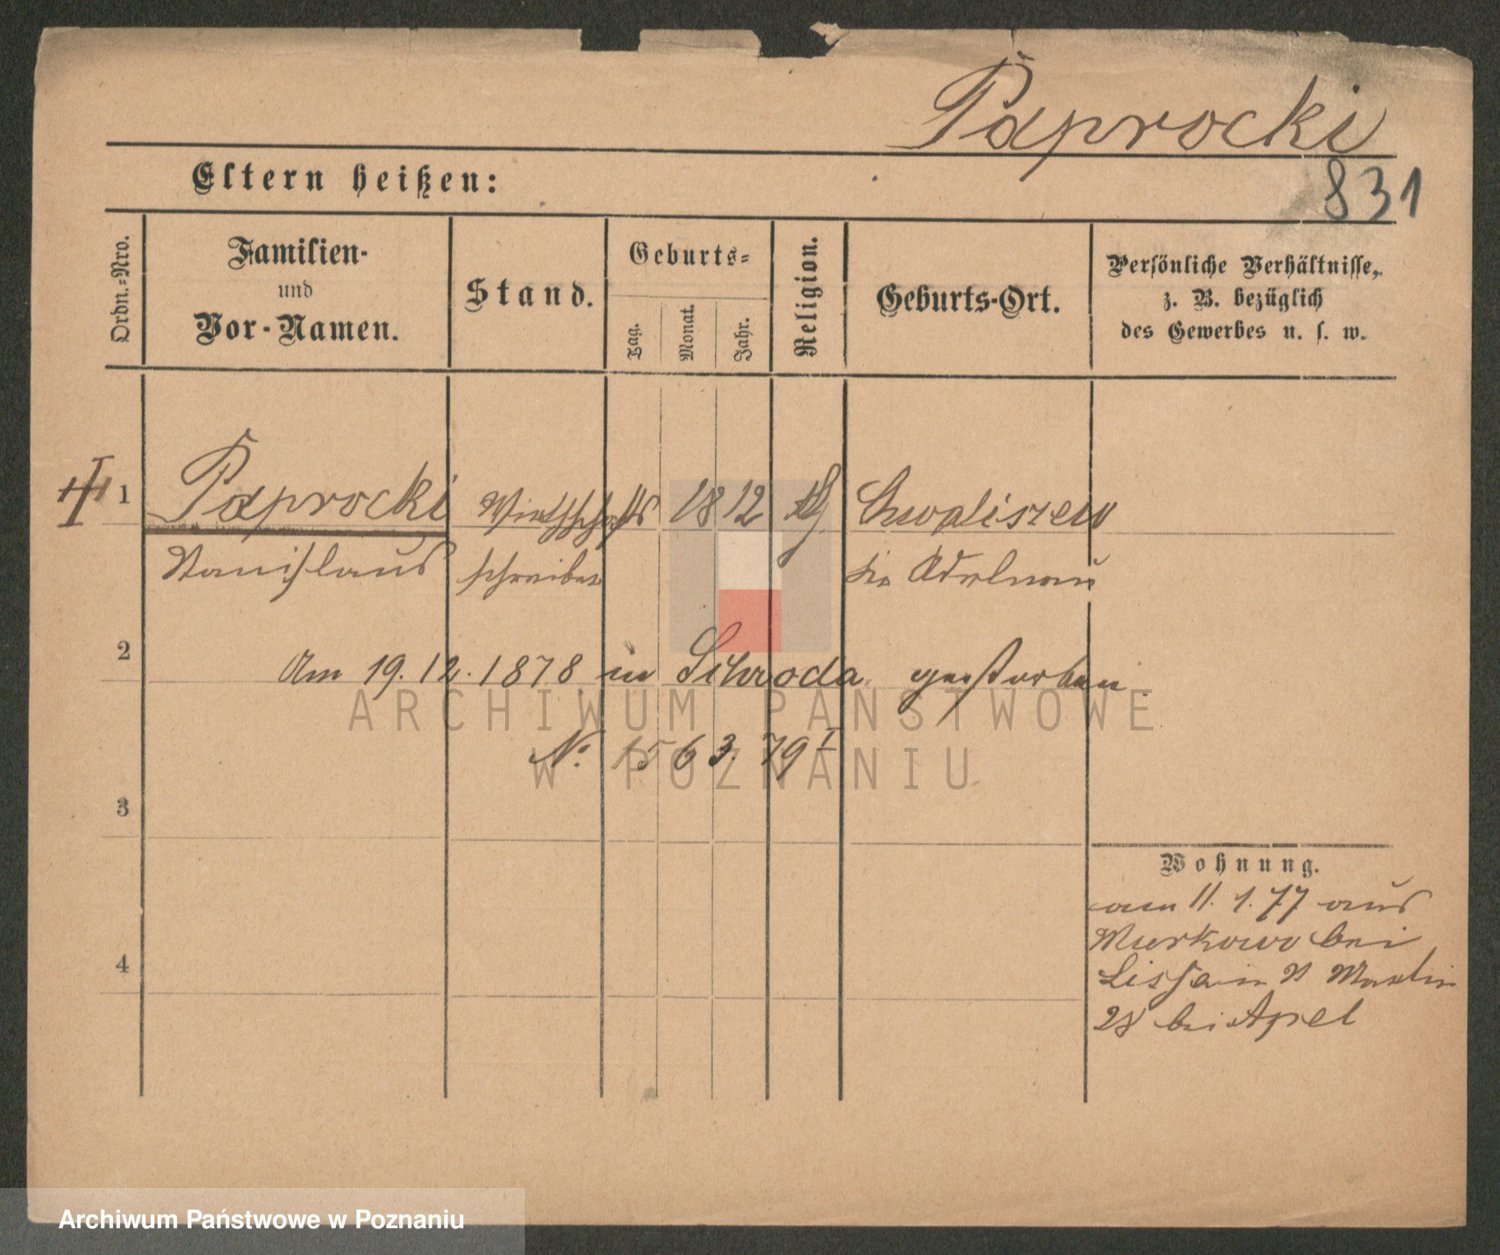 Paprocki
831
Eltern heißen:
Ordn.-Nro.
Familien-
und
Vor-Namen.
Stand.
Geburts-
Tag.
Monat.
Jahr.
Religion.
Geburts-Ort.
Persönliche Verhältnisse,
z. B. bezüglich
des Gewerbes u. s. w.
1 Paprocki Wirthschafts 1812 Chwaliszew
Stanislaus schreiber Kr. Adelnau
2
Am 19.12.1878 in Schroda gestorben.
ARCHIWUM PAŃSTWOWE
No. 1563. 79 I
W POZNANIU
3
Wohnung.
am 11. 1. 77 aus
Murkowo bei
Lissa in St Martin
28 bei Apel
4
Archiwum Państwowe w Poznaniu